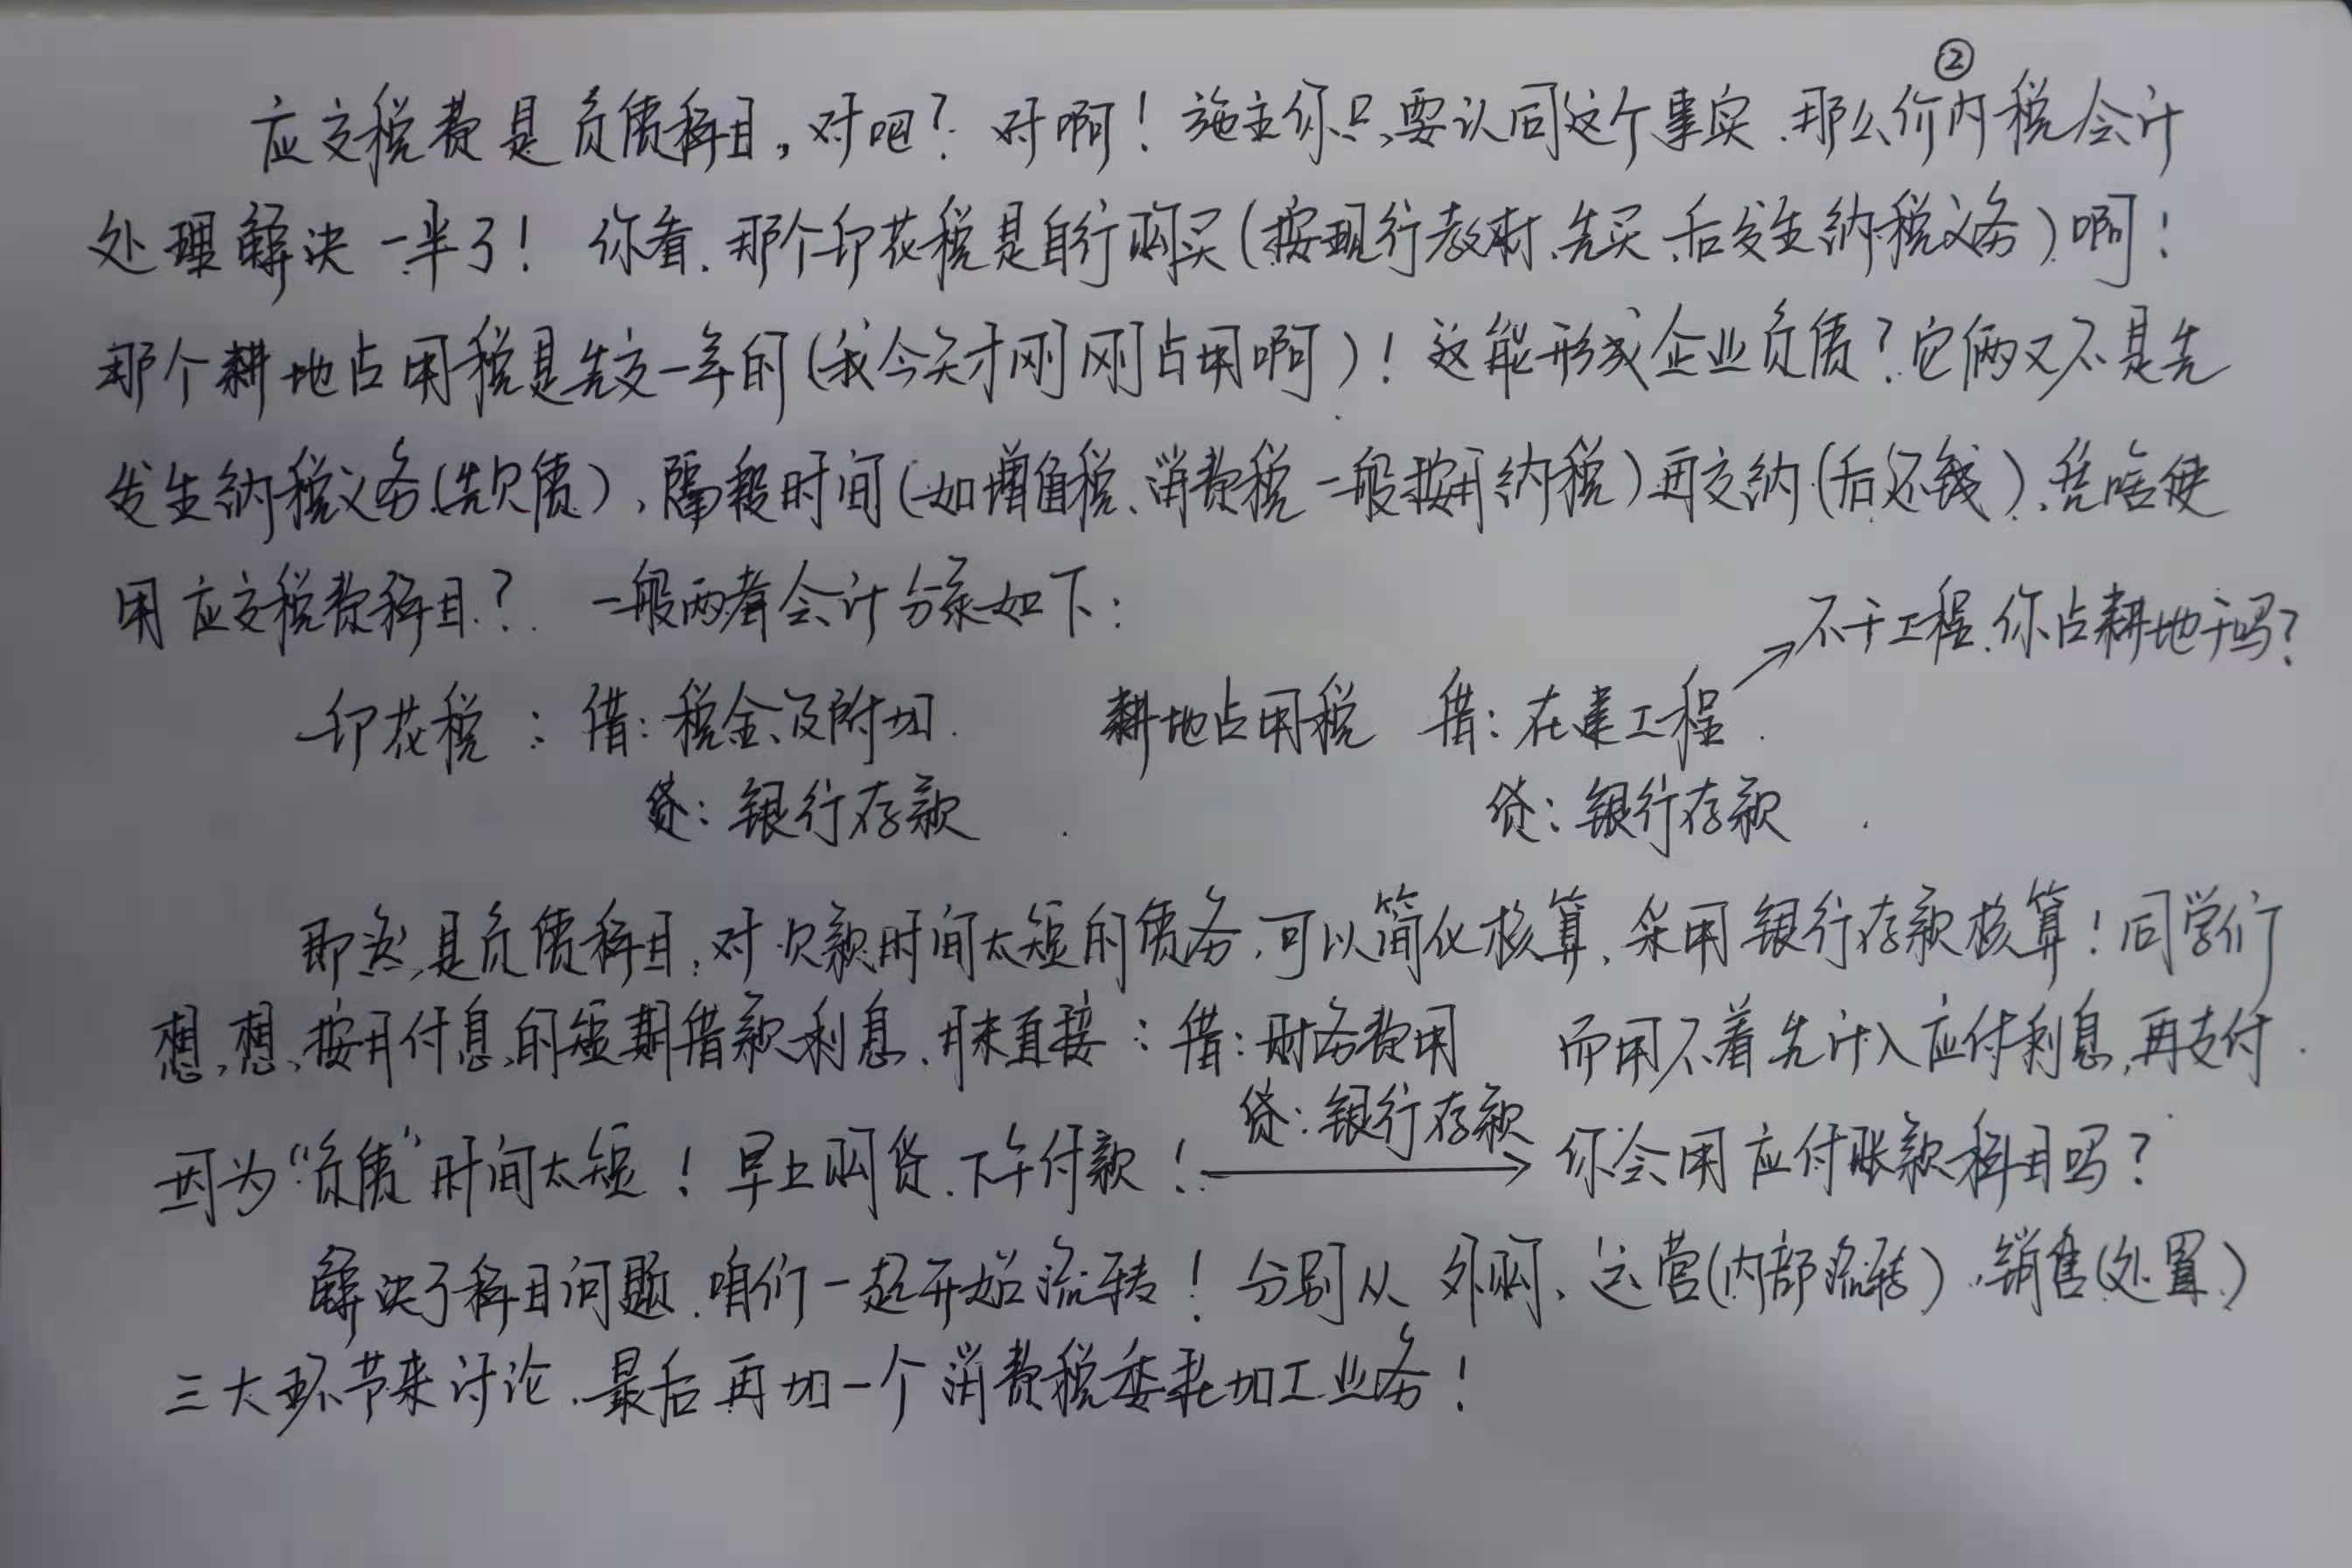 ②
应交税费是负债科目，对吧？对啊！施主你只要认同这个事实、那么价内税会计
处理解决一半了！你看、那个印花税是自行购买(按现行教材、先买、后发生纳税义务)啊！
那个耕地占用税是先交一年的(我今天才刚刚占用啊)！这能形成企业负债？它俩又不是先
发生纳税义务(先欠债)、隔段时间(如增值税、消费税一般按月纳税)再交纳(后还钱)、凭啥使
用应交税费科目？一般两者会计分录如下：
不干工程、你占耕地干吗？
印花税：借：税金及附加 耕地占用税 借：在建工程
贷：银行存款 贷：银行存款
即然是负债科目，对欠款时间太短的债务，可以简化核算，采用银行存款核算！同学们
想想、按月付息的短期借款利息、月末直接：借：财务费用 而用不着先计入应付利息，再支付.
贷：银行存款
因为“负债”时间太短！早上购货、下午付款！→你会用应付账款科目吗？
解决了科目问题、咱们一起开始流转！分别从 外购、运营(内部流转)、销售(处置)
三大环节来讨论、最后再加一个消费税委托加工业务！